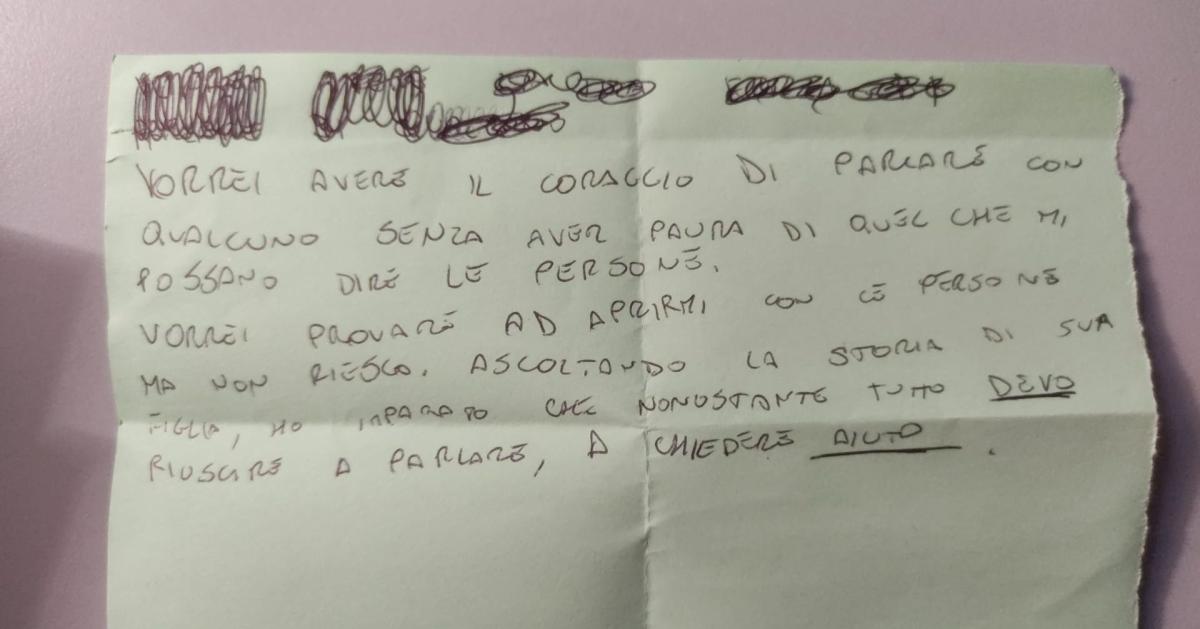 VORREI AVERE IL CORAGGIO DI PARLARE CON
QUALCUNO SENZA AVER PAURA DI QUEL CHE MI
POSSANO DIRE LE PERSONE.
VORREI PROVARE AD APRIRMI CON LE PERSONE
MA NON RIESCO. ASCOLTANDO LA STORIA DI SUA
FIGLIA, HO IMPARATO CHE NONOSTANTE TUTTO DEVO
RIUSCIRE A PARLARE, A CHIEDERE AIUTO.